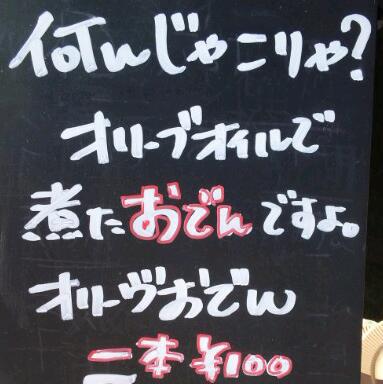 何んじゃこりゃ?
オリーブオイルで
煮たおでんですよ。
オリーヴおでん
一本¥100